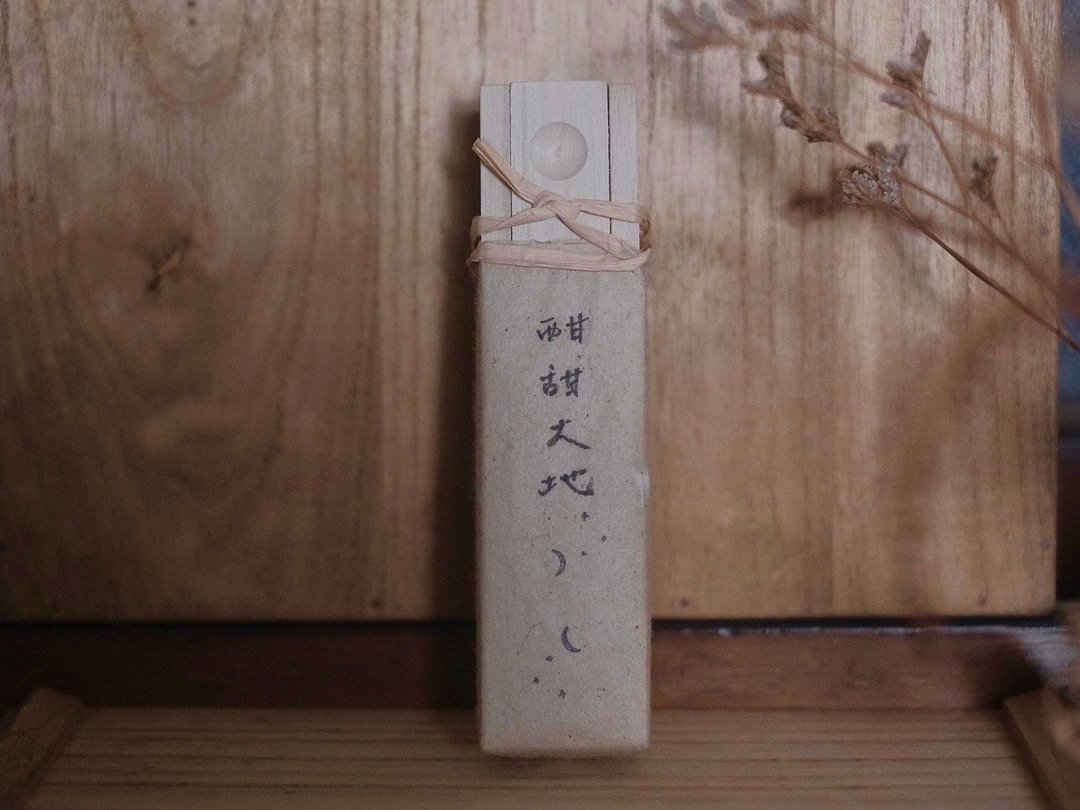 酣甜大地